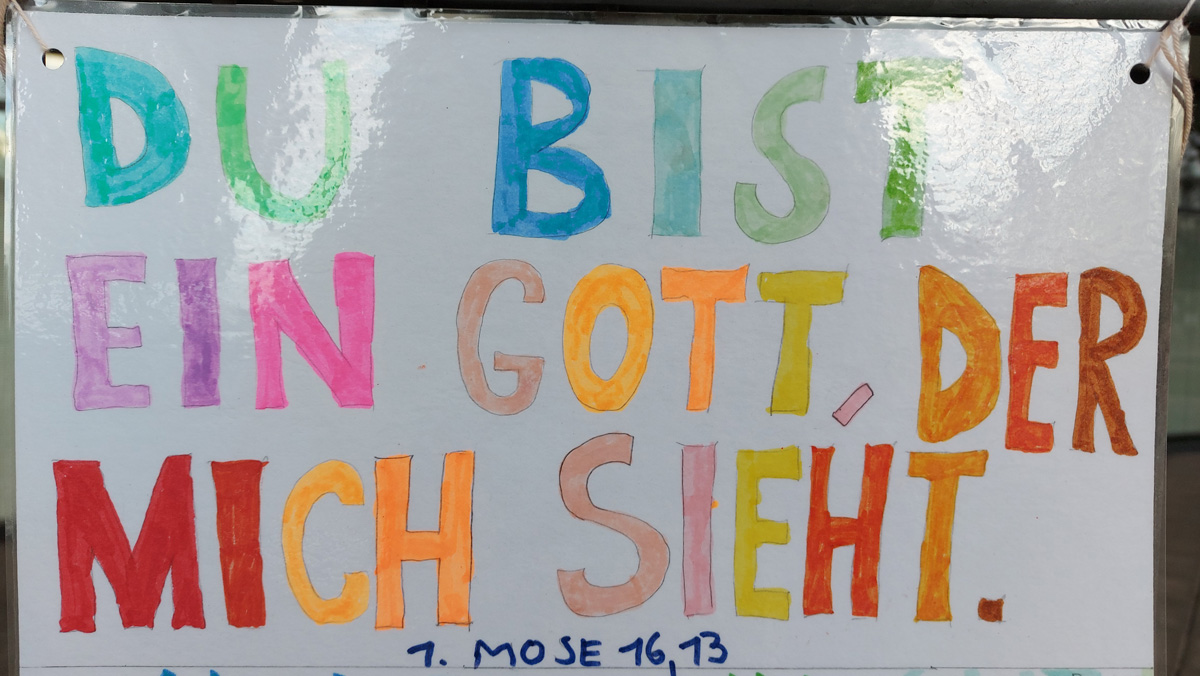 DU BIST
EIN GOTT, DER
MICH SIEHT.
1. MOSE 16,13